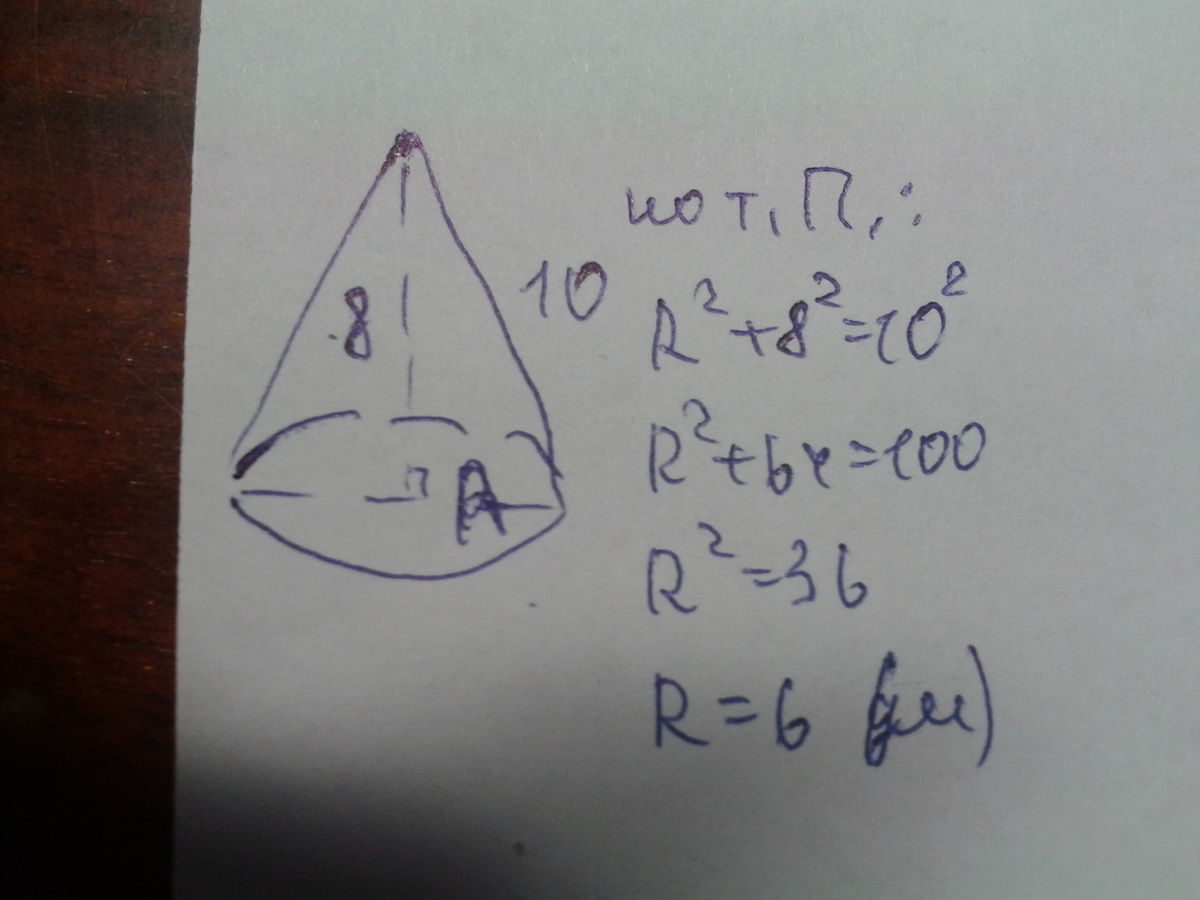 8
10
R
по т, П, :
R²+8²=10²
R²+64=100
R²=36
R=6 (дм)